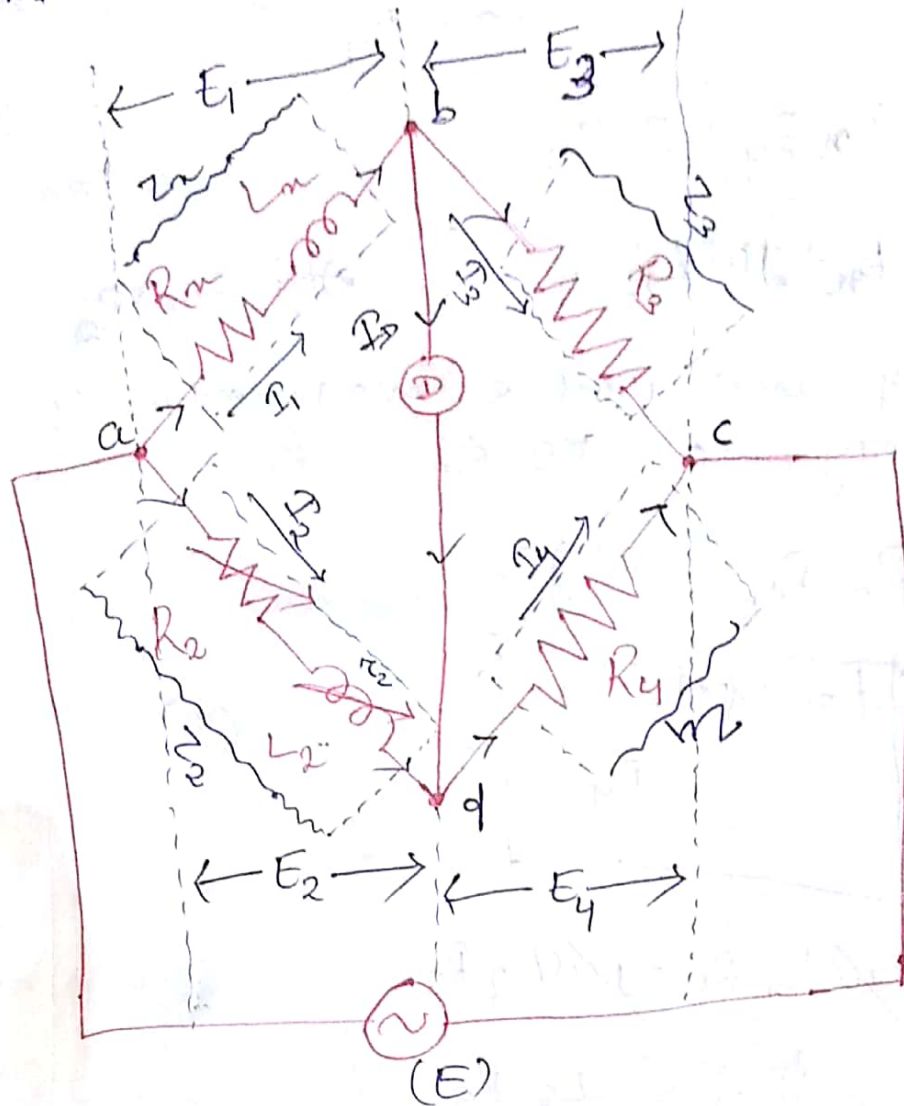 E₁
E₃
b
Zx
Lx
Rx
I₁
I_D
D
I₃
R₃
Z₃
a
c
I₂
R₂
r₂
L₂
Z₂
I₄
R₄
Z₄
d
E₂
E₄
~
(E)